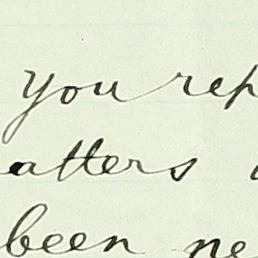 You rep
atters
been ne